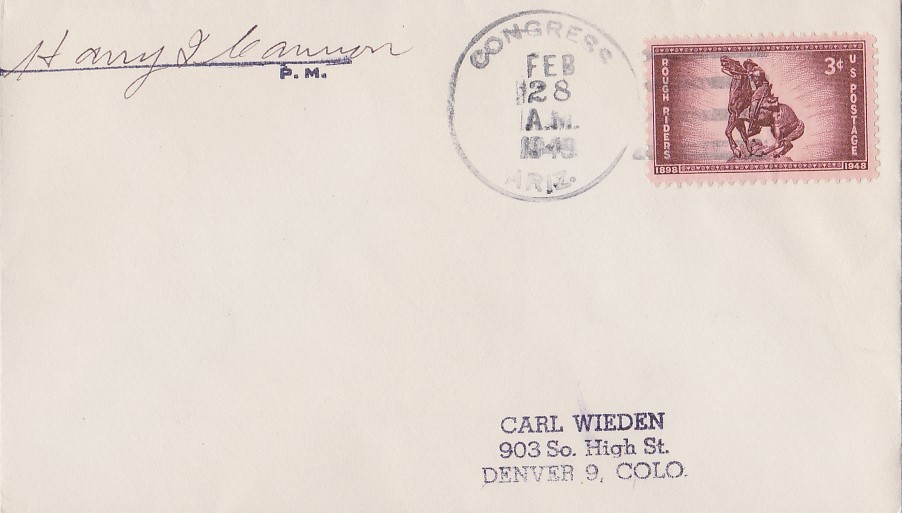 Harry I Cannon
P. M.
CONGRESS
FEB
28
A.M.
1949
ARIZ.
ROUGH RIDERS
3¢
U S POSTAGE
1898 1948
CARL WIEDEN
903 So. High St.
DENVER 9, COLO.